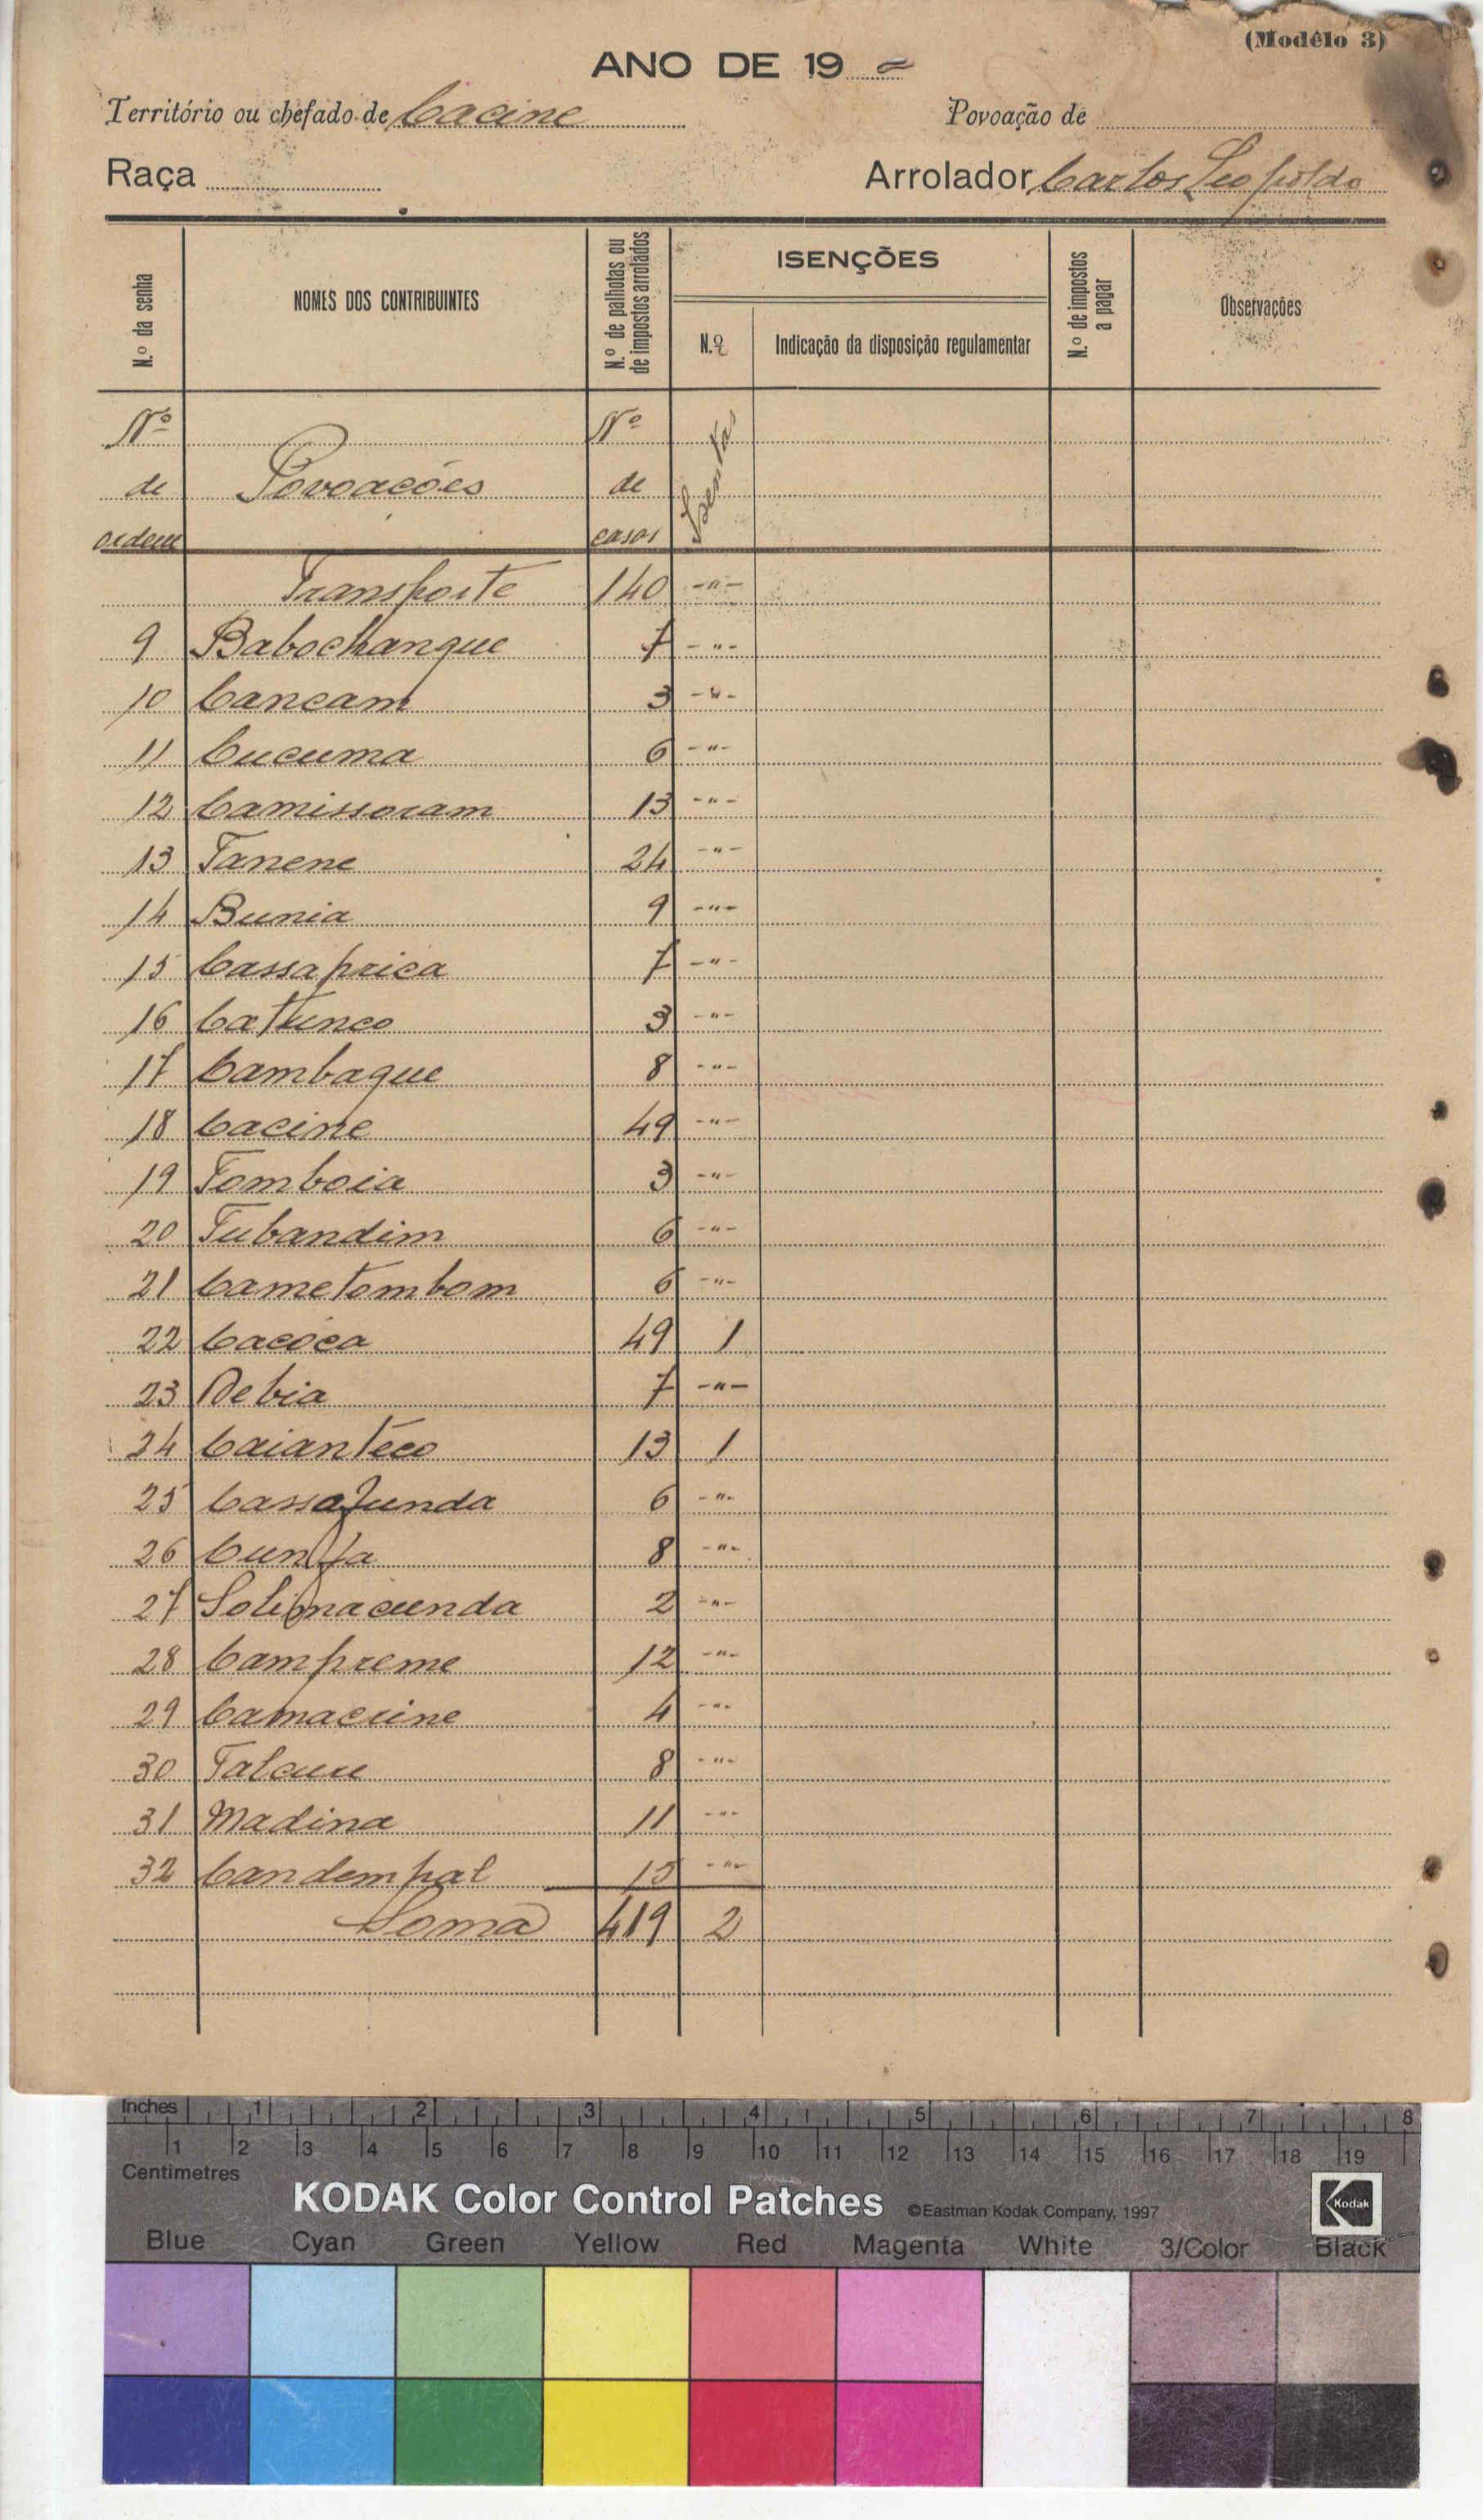 (Modêlo 3)
ANO DE 19
Território ou chefado de Cacine Povoação de
Raça Arrolador Carlos Leopoldo
N.º da senha NOMES DOS CONTRIBUINTES N.º de palhotas ou de impostos arrolados ISENÇÕES N.º de impostos a pagar Observações
N.º Indicação da disposição regulamentar
Nº de ordem Povoações Nº de casas Isentas
Transporte 140 -"-
9 Babochanque 7 -"-
10 Cancam 3 -"-
11 Cucuma 6 -"-
12 Camissoram 13 -"-
13 Tanene 24 -"-
14 Bunia 9 -"-
15 Cassaprica 7 -"-
16 Catunco 3 -"-
17 Cambaque 8 -"-
18 Cacine 49 -"-
19 Tomboia 3 -"-
20 Tubandim 6 -"-
21 Cametombom 6 -"-
22 Cacóca 49 1
23 Debia 7 -"-
24 Caiantéco 13 1
25 Cassacunda 6 -"-
26 8 -"-
27 Solimacunda 2 -"-
28 Campreme 12 -"-
29 Camacuine 4 -"-
30 8 -"-
31 Madina 11 -"-
32 Candempal 15 -"-
Soma 419 2
Inches 1 2 3 4 5 6 7 8
1 2 3 4 5 6 7 8 9 10 11 12 13 14 15 16 17 18 19
Centimetres
KODAK Color Control Patches ©Eastman Kodak Company, 1997 Kodak
Blue Cyan Green Yellow Red Magenta White 3/Color Black